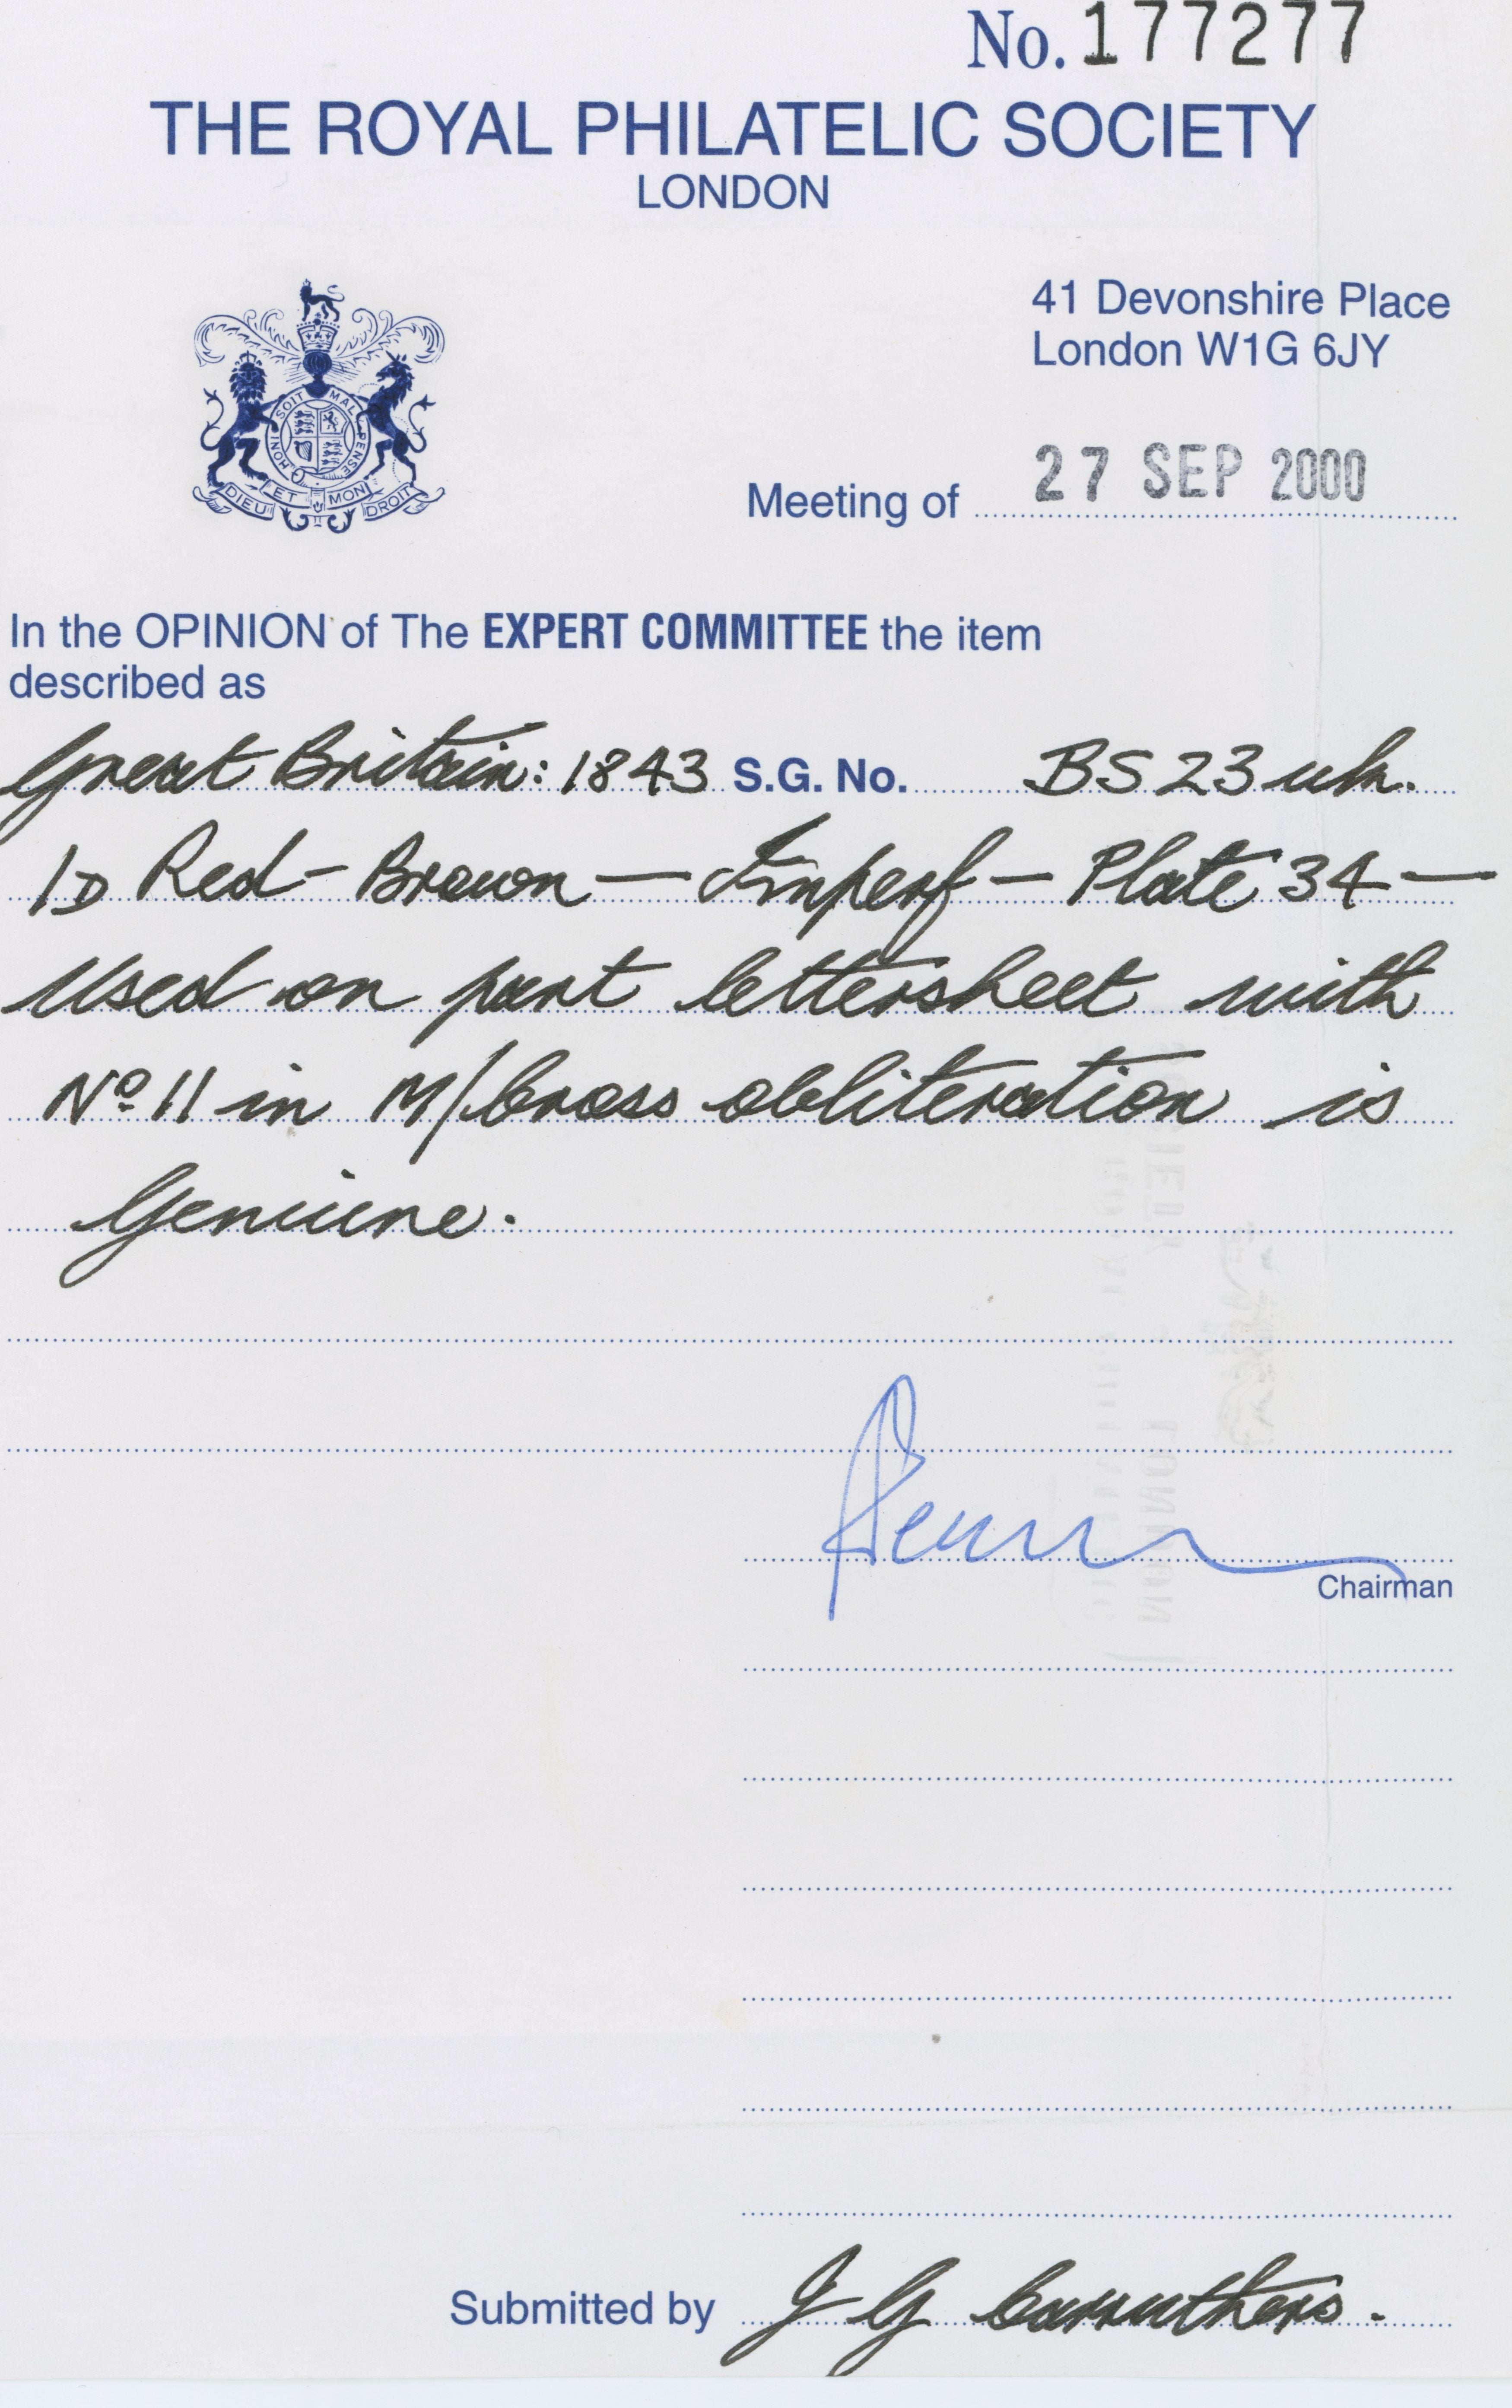 No. 177277
THE ROYAL PHILATELIC SOCIETY
LONDON
HONI SOIT MAL PENSE
DIEU ET MON DROIT
41 Devonshire Place
London W1G 6JY
Meeting of 27 SEP 2000
In the OPINION of The EXPERT COMMITTEE the item
described as
Great Britain: 1843 S.G. No. BS23uh.
1D Red-Brown — Imperf — Plate 34 —
Used on part lettersheet with
Nº 11 in M/Cross obliteration is
Genuine.
Chairman
Submitted by J G Carruthers.